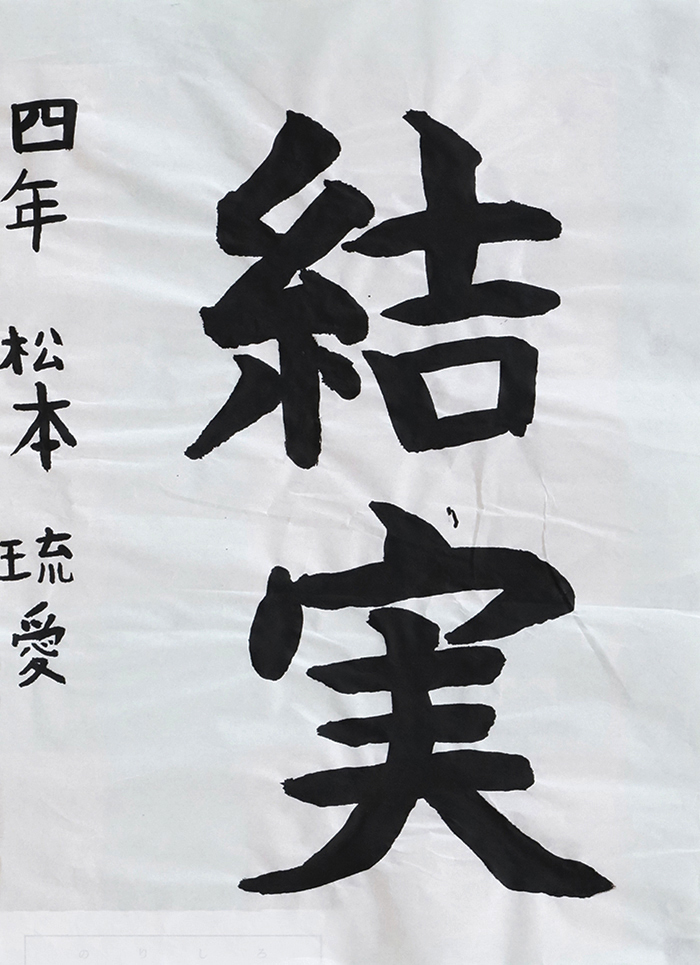 結実
四年 松本 琉愛
のりしろ